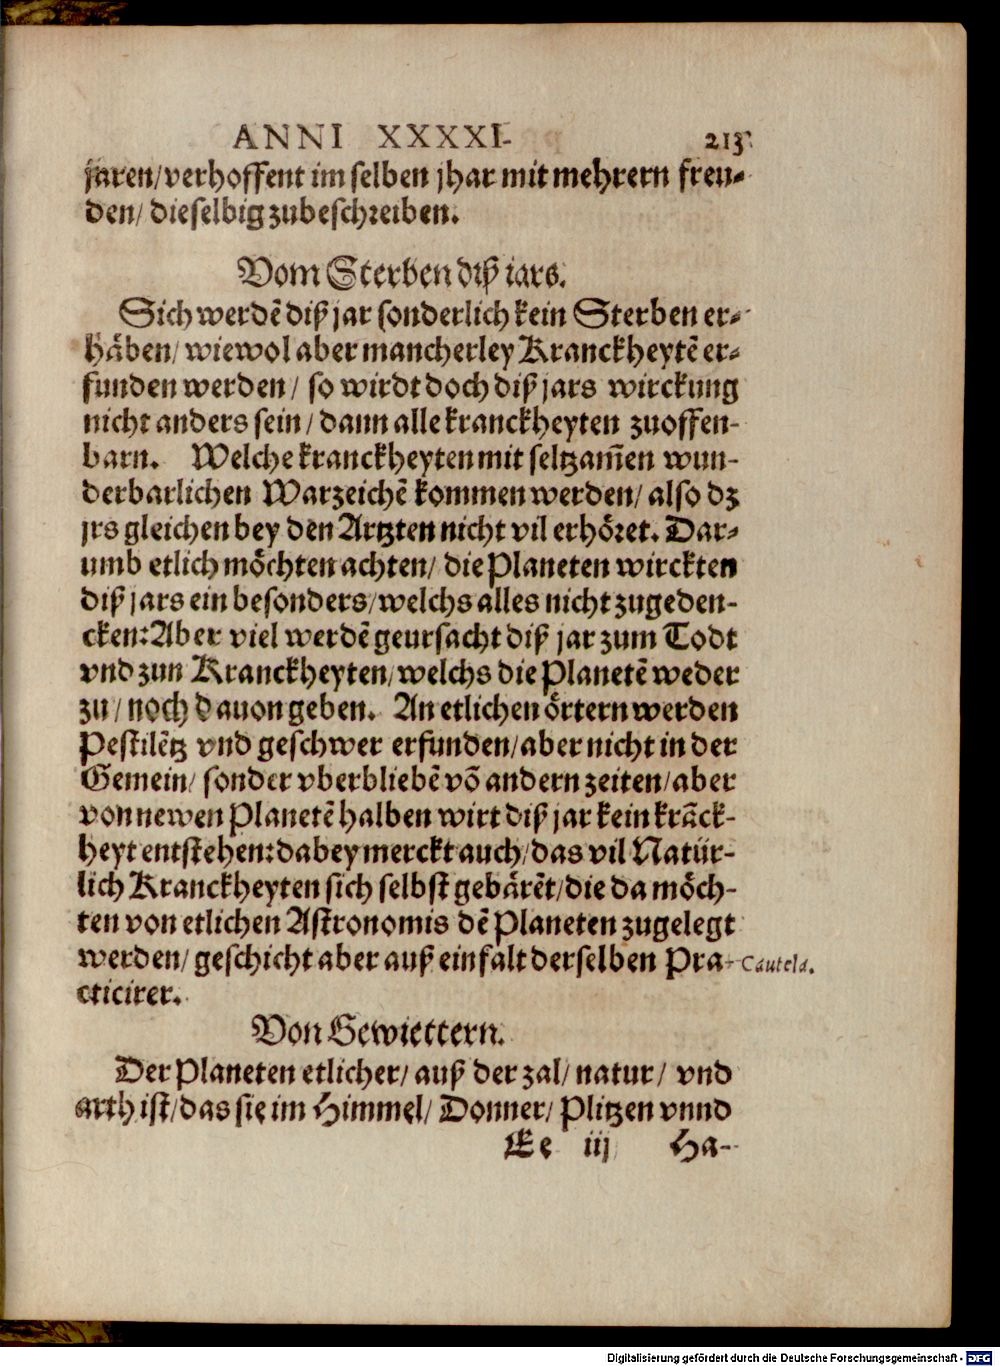 ANNI XXXXI. 213
jaren/verhoffent im selben jhar mit mehrern freu-
den/ dieselbig zubeschreiben.
Vom Sterben diß iars.
Sich werdē diß jar sonderlich kein Sterben er-
häben/ wiewol aber mancherley Kranckheytē er-
funden werden/ so wirdt doch diß jars wirckung
nicht anders sein/ dann alle kranckheyten zuoffen-
barn. Welche kranckheyten mit seltzam̄en wun-
derbarlichen Warzeichē kommen werden/ also dz
jrs gleichen bey den Artzten nicht vil erhöret. Dar-
umb etlich möchten achten/ die Planeten wirckten
diß jars ein besonders/welchs alles nicht zugeden-
cken: Aber viel werdē geursacht diß jar zum Todt
vnd zun Kranckheyten/welchs die Planetē weder
zu/ noch dauon geben. An etlichen örtern werden
Pestilētz vnd geschwer erfunden/aber nicht in der
Gemein/ sonder vberbliebē vō andern zeiten/aber
von newen Planetē halben wirt diß jar kein krāck-
heyt entstehen: dabey merckt auch/das vil Natür-
lich Kranckheyten sich selbst gebärēt/die da möch-
ten von etlichen Astronomis dē Planeten zugelegt
werden/ geschicht aber auß einfalt derselben Pra- Cautela.
cticirer.
Von Gewiettern.
Der Planeten etlicher/ auß der zal/ natur/ vnd
arth ist/das sie im Himmel/ Donner/ Plitzen vnnd
Ee iij Ha-
Digitalisierung gefördert durch die Deutsche Forschungsgemeinschaft - DFG